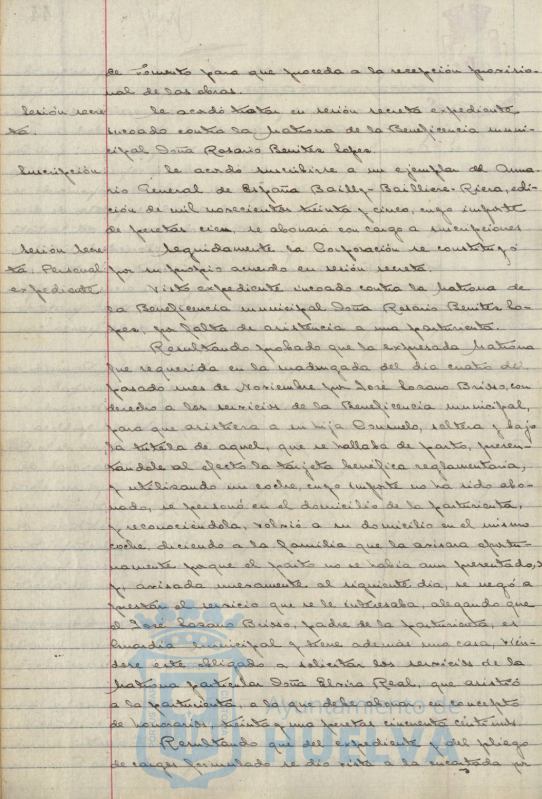 de Fomento para que proceda a la recepción provisio-
nal de las obras.
Sesión secre-
ta.
Se acordó tratar en sesión secreta expediente
incoado contra la Matrona de la Beneficencia muni-
cipal Doña Rosario Benitez Lopez.
Suscripción
Se acordó suscribirse a un ejemplar del Anua-
rio General de España Bailly-Bailliere-Riera, edi-
ción de mil novecientos treinta y cinco, cuyo importe
de pesetas cien, se abonará con cargo a suscripciones
Sesión secre-
ta. Personal
expediente
Seguidamente la Corporación se constituyó
por su propio acuerdo en sesión secreta.
Visto expediente incoado contra la Matrona de
la Beneficencia municipal Doña Rosario Benitez Lo-
pez, por falta de asistencia a una parturienta.
Resultando probado que la expresada Matrona
fue requerida en la madrugada del dia cuatro del
pasado mes de Noviembre por José Lozano Brisso, con
derecho a los servicios de la Beneficencia municipal,
para que asistiera a su hija Consuelo, soltera y bajo
la tutela de aquel, que se hallaba de parto, presen-
tándole al efecto la tarjeta benefica reglamentaria,
y utilizando un coche, cuyo importe no ha sido abo-
nado, se personó en el domicilio de la parturienta,
y reconociéndola, volvió a su domicilio en el mismo
coche diciendo a la familia que la avisara oportu-
namente porque el parto no se habia aun presentado,
y, avisada nuevamente al siguiente dia, se negó a
prestar el servicio que se le interesaba, alegando que
el José Lozano Brisso, padre de la parturienta, es
Guardia Municipal y tiene además una casa, vién-
dose éste obligado a solicitar los servicios de la
Matrona particular Doña Elvira Real, que asistió
a la parturienta, a la que debe abonar en concepto
de honorarios, treinta y una pesetas cincuenta céntimos.
Resultando que del expediente y del pliego
de cargos formulado se dio vista a la encartada por
Ayuntamiento de
HUELVA